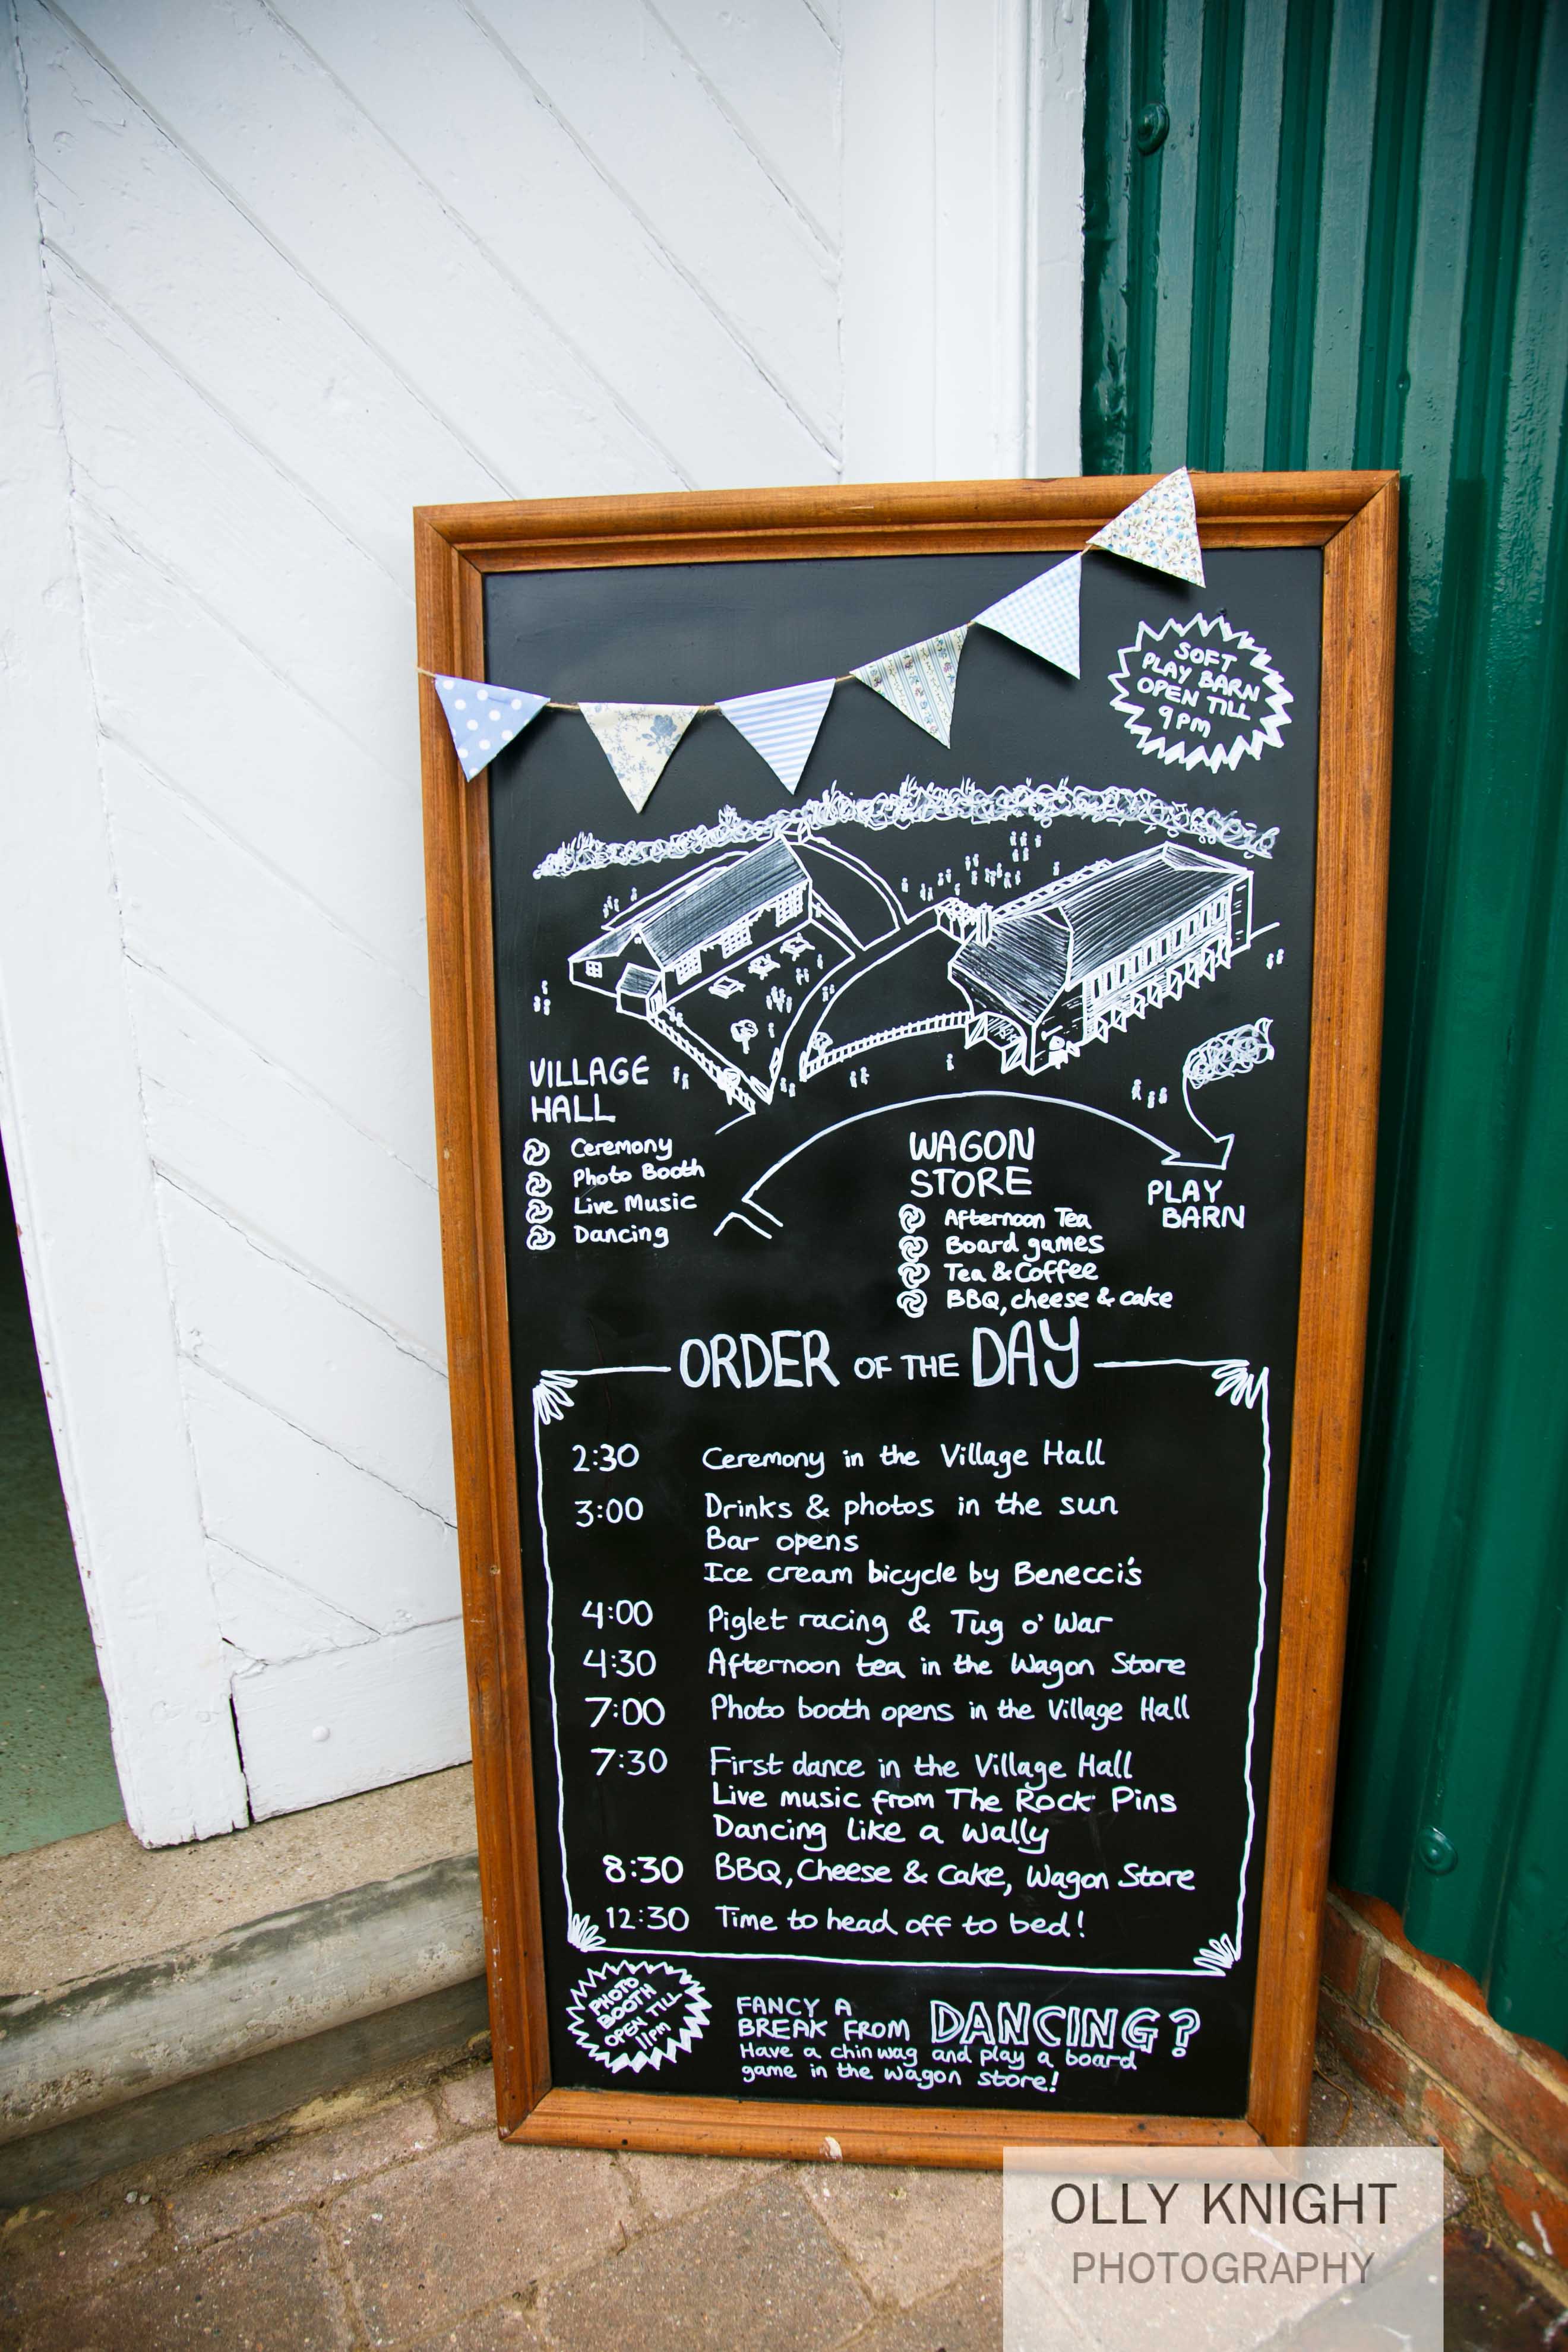 SOFT
PLAY BARN
OPEN TILL
9PM
VILLAGE
HALL
Ceremony
Photo Booth
Live Music
Dancing
WAGON
STORE
Afternoon Tea
Board games
Tea & Coffee
BBQ, cheese & cake
PLAY
BARN
ORDER OF THE DAY
2:30 Ceremony in the Village Hall
3:00 Drinks & photos in the sun
Bar opens
Ice cream bicycle by Benecci's
4:00 Piglet racing & Tug o' War
4:30 Afternoon tea in the Wagon Store
7:00 Photo booth opens in the Village Hall
7:30 First dance in the Village Hall
Live music from The Rock Pins
Dancing like a wally
8:30 BBQ, Cheese & Cake, Wagon Store
12:30 Time to head off to bed!
PHOTO
BOOTH
OPEN TILL
11PM
FANCY A
BREAK FROM DANCING?
Have a chin wag and play a board
game in the wagon store!
OLLY KNIGHT
PHOTOGRAPHY